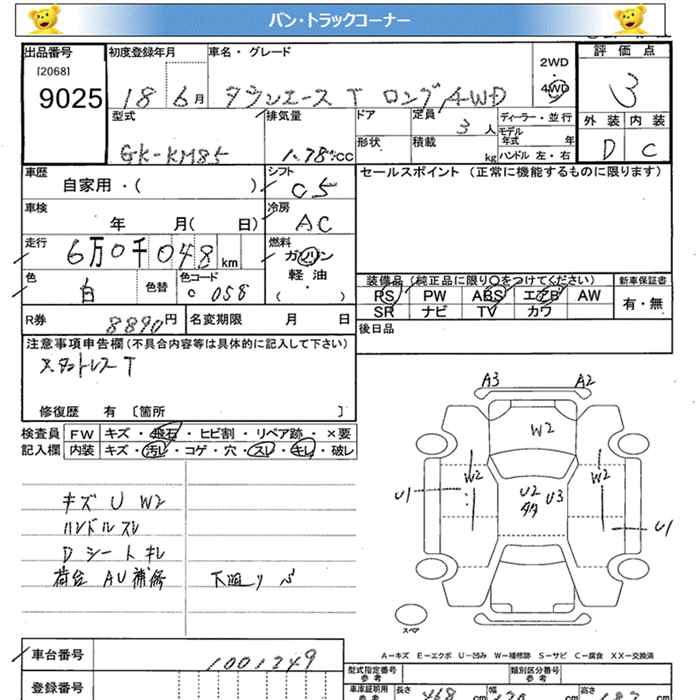 バン・トラックコーナー
出品番号 初度登録年月 車名・グレード 2WD 評価点
[2068] 4WD
9025 18 6月 タウンエース T ロング 4WD 3
型式 排気量 ドア 定員 3人 ディーラー・並行 外装 内装
形状 積載 kg モデル年式 年
GK-KM85 1.78cc ハンドル 左・右 D C
車歴 シフト セールスポイント (正常に機能するものに限ります)
自家用・( ) C5
車検 冷房
年 月( 日) AC
走行 燃料
6万0千048km ガソリン
色 色替 色コード 軽油 装備品 (純正品に限り○をつけてください) 新車保証書
白 058 ( ) PS PW ABS エアB AW 有・無
SR ナビ TV カワ
R券 8890円 名変期限 月 日 後日品
注意事項申告欄 (不具合内容等は具体的に記入して下さい)
スタットレスT
修復歴 有 [箇所 ]
検査員 FW キズ・飛石・ヒビ割・リペア跡・×要
記入欄 内装 キズ・汚レ・コゲ・穴・スレ・キレ・破レ
キズ U W2
ハンドルスレ
Dシートキレ
荷台 AU補修
A3 A2
W2
W2 U2 U3 W2
U1 U1
スペア
A-キズ E-エクボ U-凹み W-補修跡 S-サビ C-腐食 XX-交換済
車台番号 1001349
型式指定番号 参考 類別区分番号 参考
登録番号
車庫証明用 参考 長さ 468cm 幅 cm 高さ cm